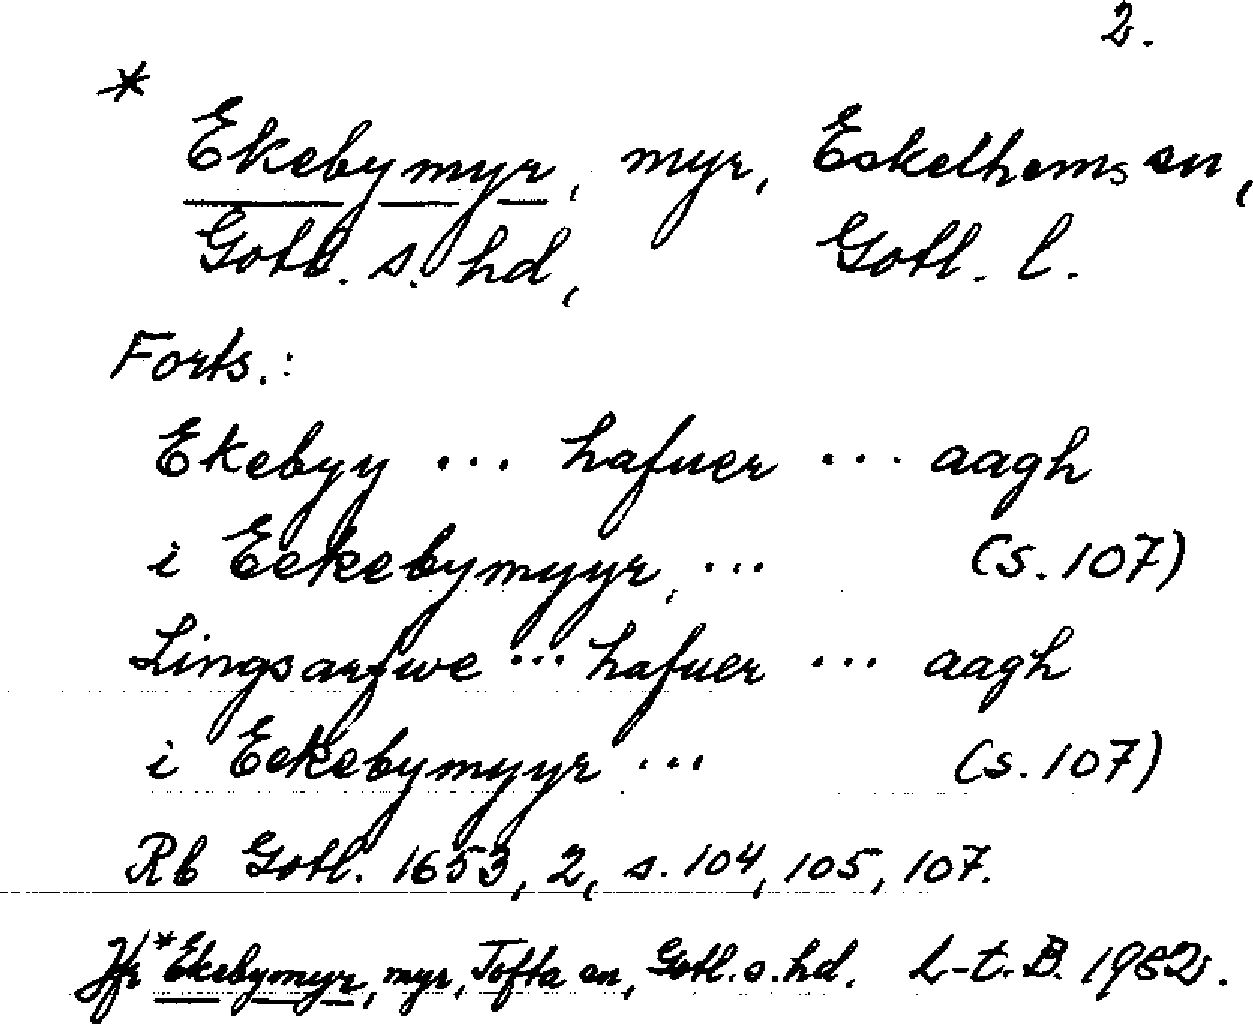 2.
*
Ekebymyr, myr, Eskelhems sn,
Gotl. s. hd, Gotl. l.
Forts.:
Ekebyy ... hafuer ... aagh
i Eekebymyyr, ... (s. 107)
Lingsarfwe ... hafuer ... aagh
i Eekebymyyr ... (s. 107)
Rb Gotl. 1653, 2, s. 104, 105, 107.
Jfr *Ekebymyr, myr, Tofta sn, Gotl. s. hd. L-t. B. 1982.